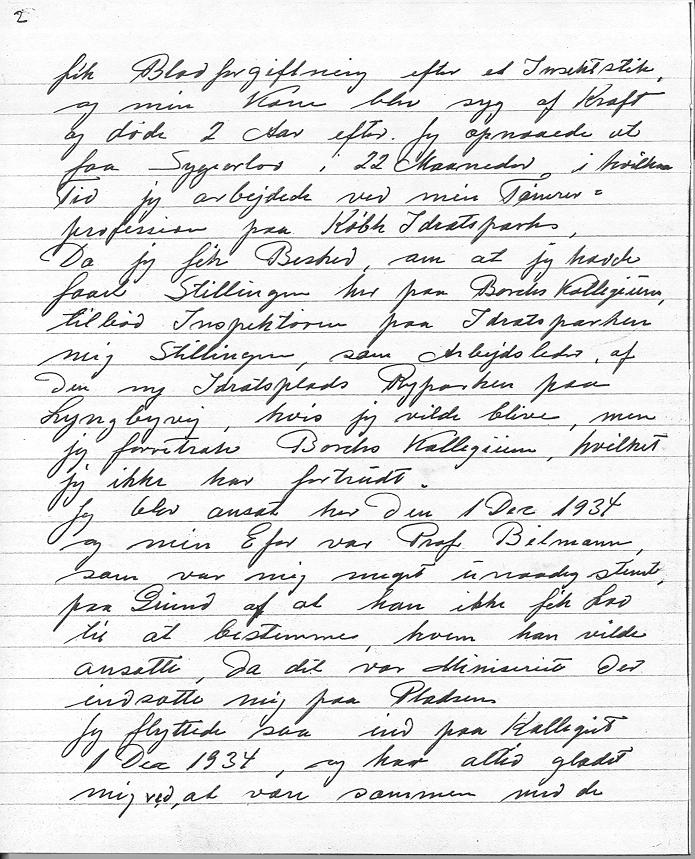 2
fik Blodforgiftning efter et Insektstik,
og min Kone blev syg af Kræft
og døde 2 Aar efter. Jeg opnaaede at
faa Sygeorlov i 22 Maaneder, i hvilken
Tid jeg arbejdede ved min Tømrer=
profession paa Købh Idrætsparks,
Da jeg fik Besked, om at jeg havde
faaet Stillingen her paa Borchs Kollegium,
tilbød Inspektøren paa Idrætsparken
mig Stillingen, som Arbejdsleder, af
den ny Idrætsplads Ryparken paa
Lyngbyvej, hvis jeg vilde blive, men
jeg foretrak Borchs Kollegium, hvilket
jeg ikke har fortrudt.
Jeg blev ansat her den 1 Dec 1934
og min Efor var Prof. Bilmann,
som var mig meget unaadig stemt,
paa Grund af at han ikke fik Lov
til at bestemme, hvem han vilde
ansætte, da det var Ministeriet der
indsatte mig paa Pladsen
Jeg flyttede saa ind paa Kollegiet
1 Dec 1934, og har altid glædet
mig ved, at være sammen med de